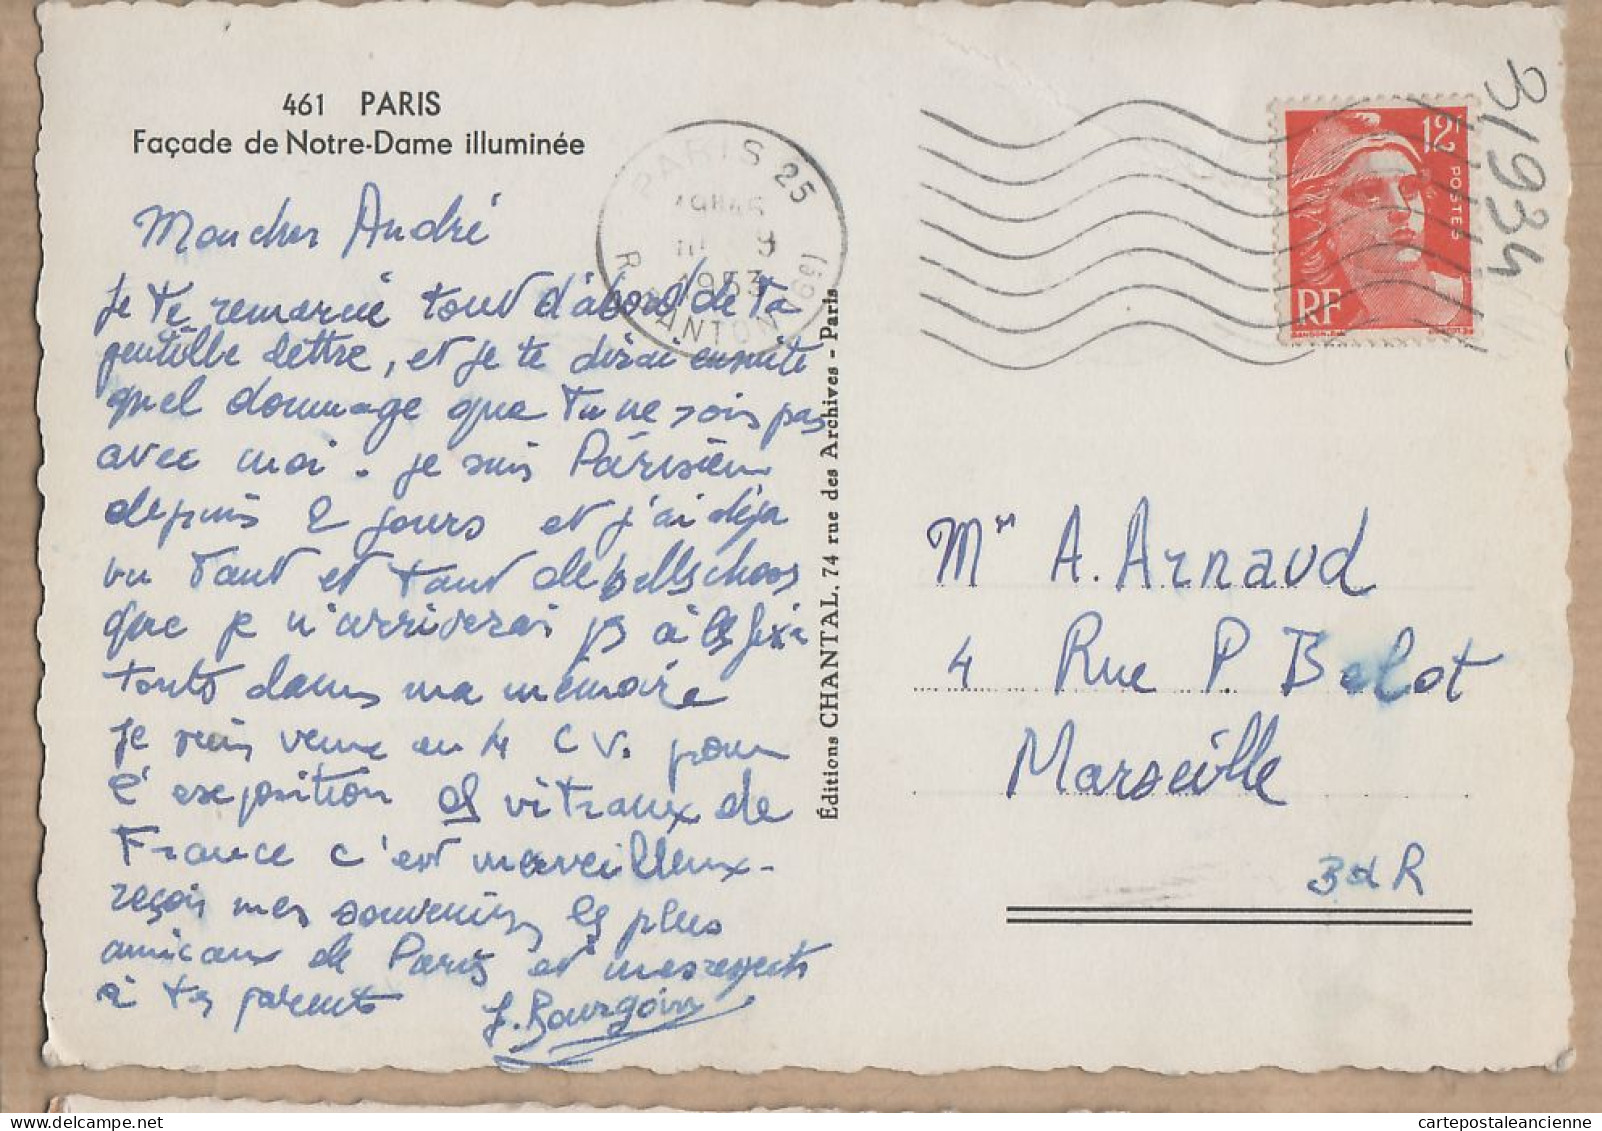 461 PARIS
Façade de Notre-Dame illuminée
Mon cher André
Je te remercie tout d'abord de ta
gentille lettre, et je te dirai ensuite
quel dommage que tu ne sois pas
avec moi. Je suis Parisien
depuis 2 jours et j'ai déja
vu tant et tant de belles choses
que je n'arriverai pas à les fixer
toutes dans ma mémoire
Je suis venu en 4 CV. pour
l'exposition des vitraux de
France c'est merveilleux-
reçois mes souvenirs les plus
amicaux de Paris et mes respects
à tes parents J. Bourgoin
Éditions CHANTAL, 74 rue des Archives - Paris
PARIS 25
19H45
9
1953
R. DANTON (6e)
12F
POSTES
RF
31934
Mr A. Arnaud
4 Rue P. Belot
Marseille
B d R
cartepostaleancienne.com